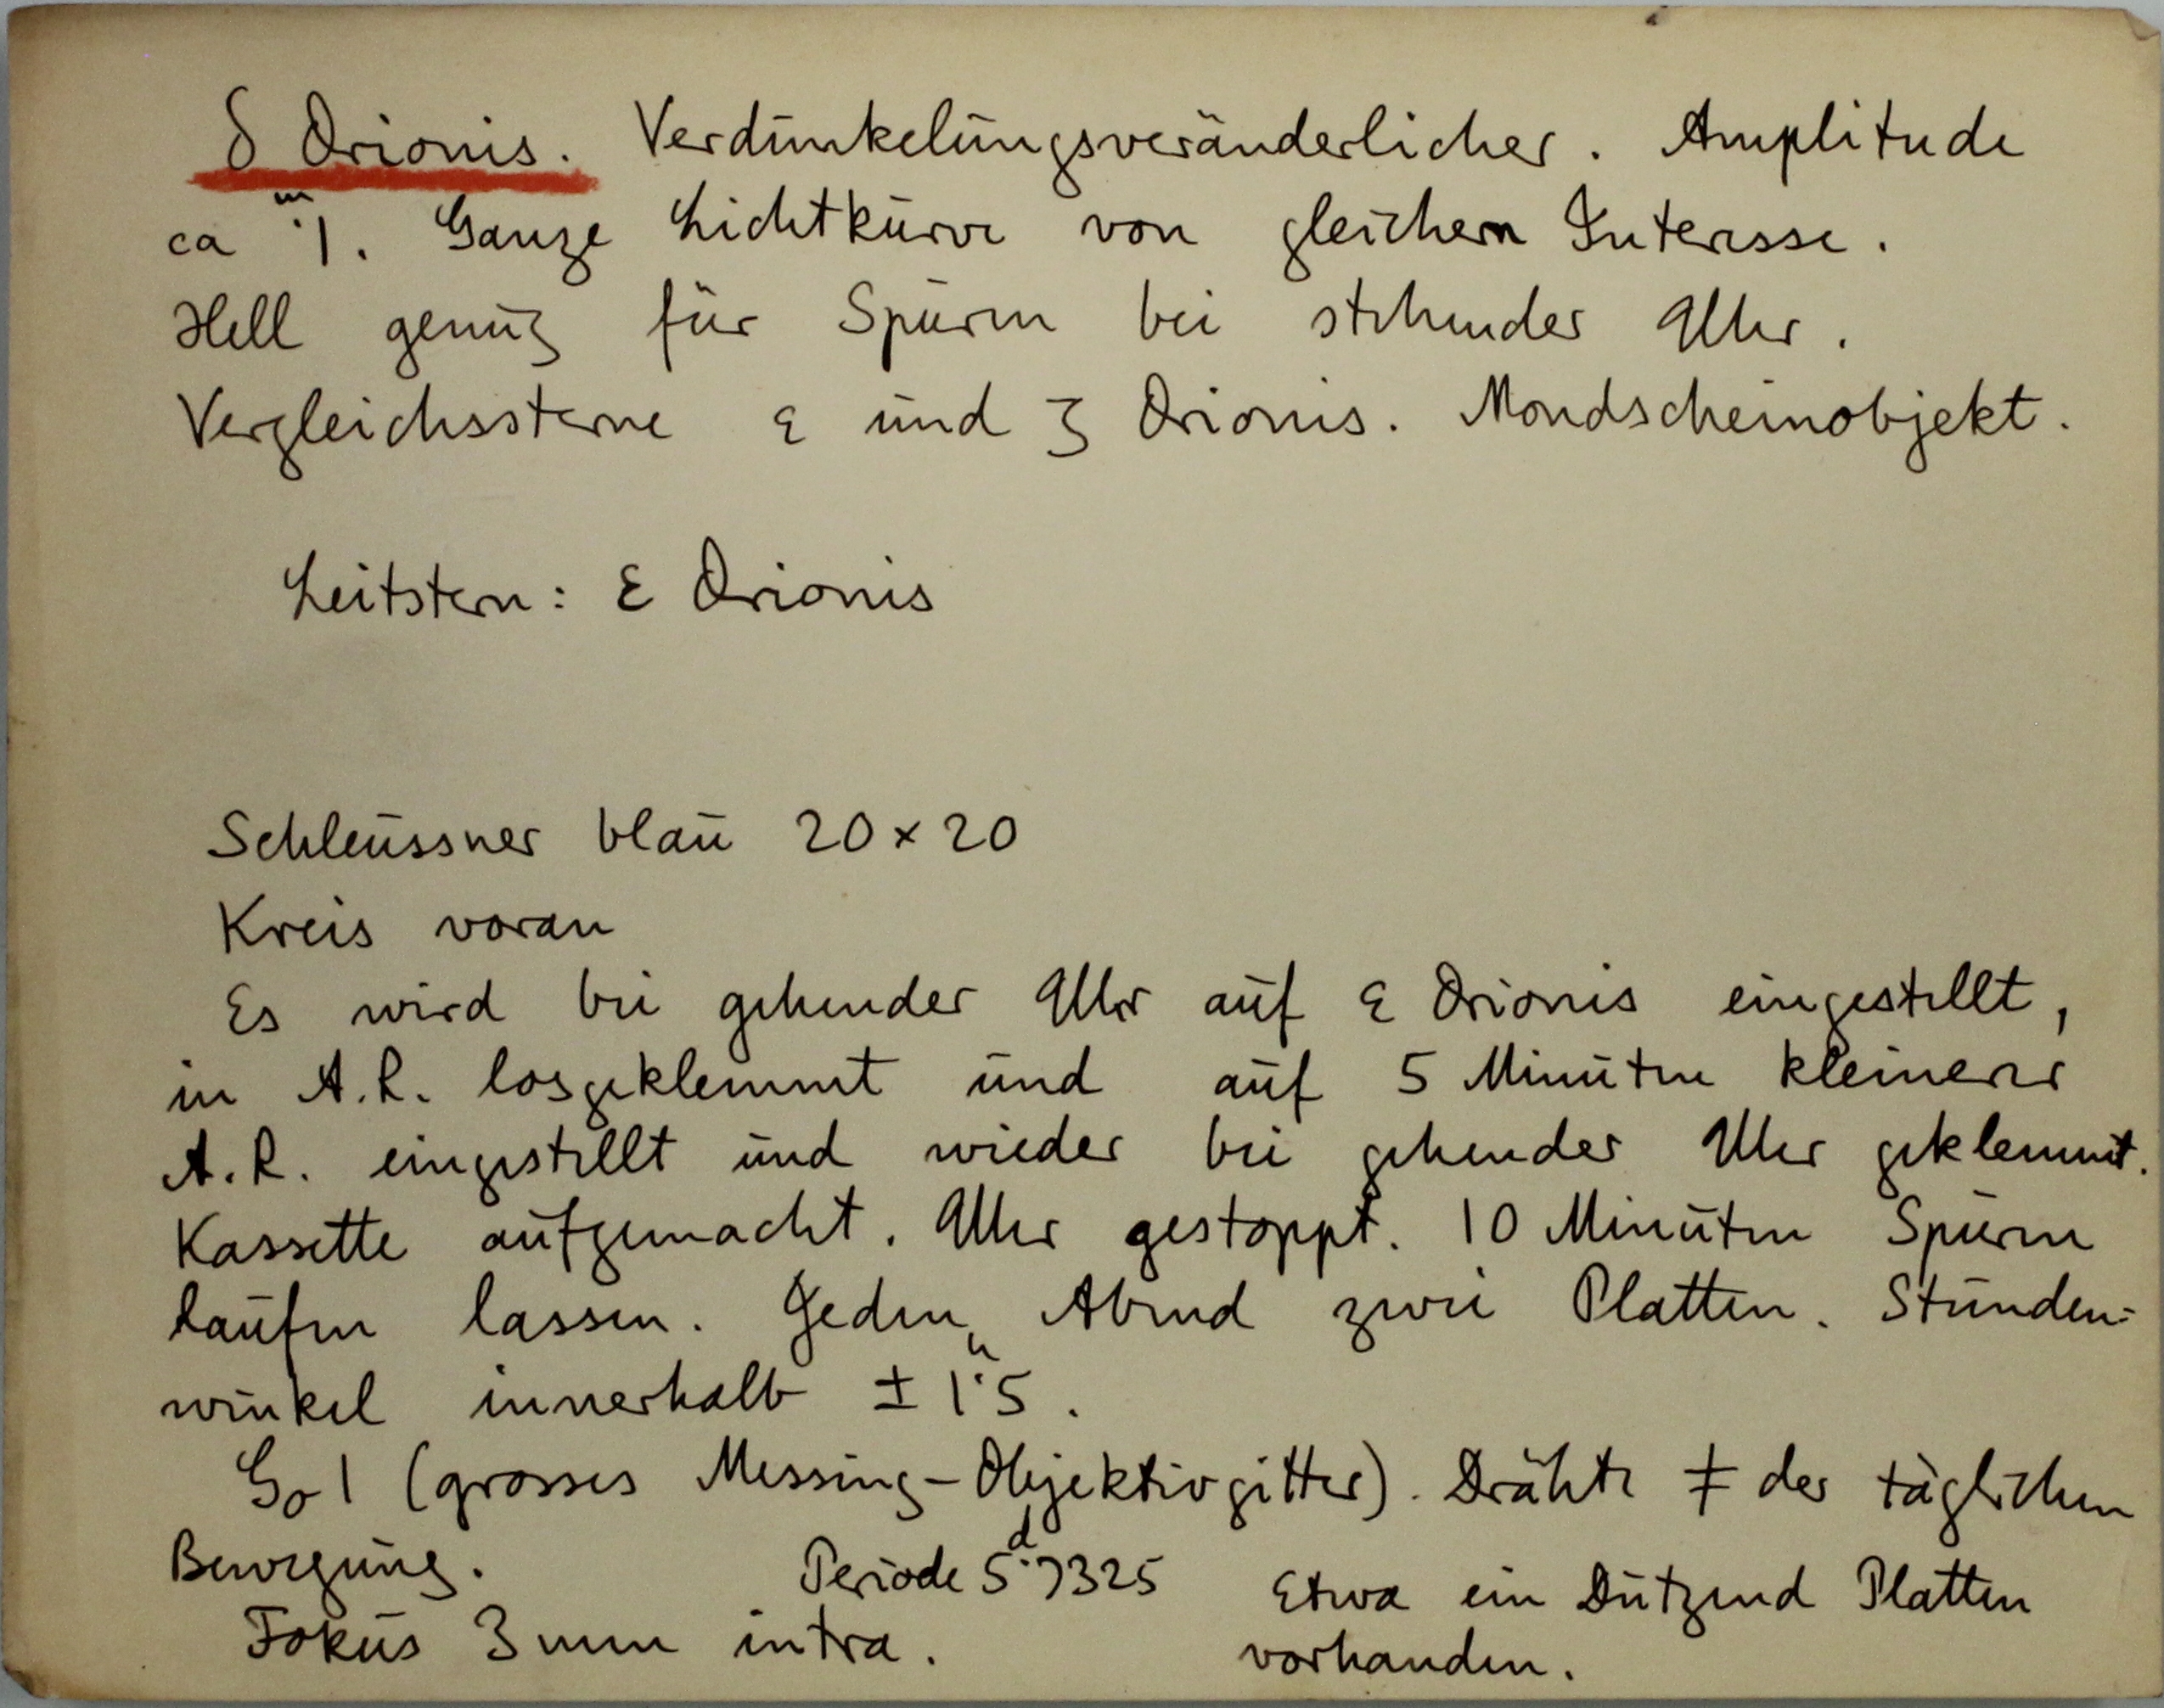 δ Orionis. Verdunkelungsveränderlicher. Amplitude
ca ᵐ.1. Ganze Lichtkurve von gleichem Interesse.
Hell genug für Spuren bei stehender Uhr.
Vergleichssterne ε und ζ Orionis. Mondscheinobjekt.
Leitstern: ε Orionis
Schleussner blau 20 × 20
Kreis voran
Es wird bei gehender Uhr auf ε Orionis eingestellt,
in A.R. losgeklemmt und auf 5 Minuten kleinerer
A.R. eingestellt und wieder bei gehender Uhr geklemmt.
Kassette aufgemacht. Uhr gestoppt. 10 Minuten Spuren
laufen lassen. Jeden Abend zwei Platten. Stunden-
winkel innerhalb ± 1ʰ.5.
Go 1 (grosses Messing-Objektivgitter). Drähte ≠ der täglichen
Bewegung. Periode 5ᵈ.7325 Etwa ein Dutzend Platten
Fokus 3 mm intra. vorhanden.